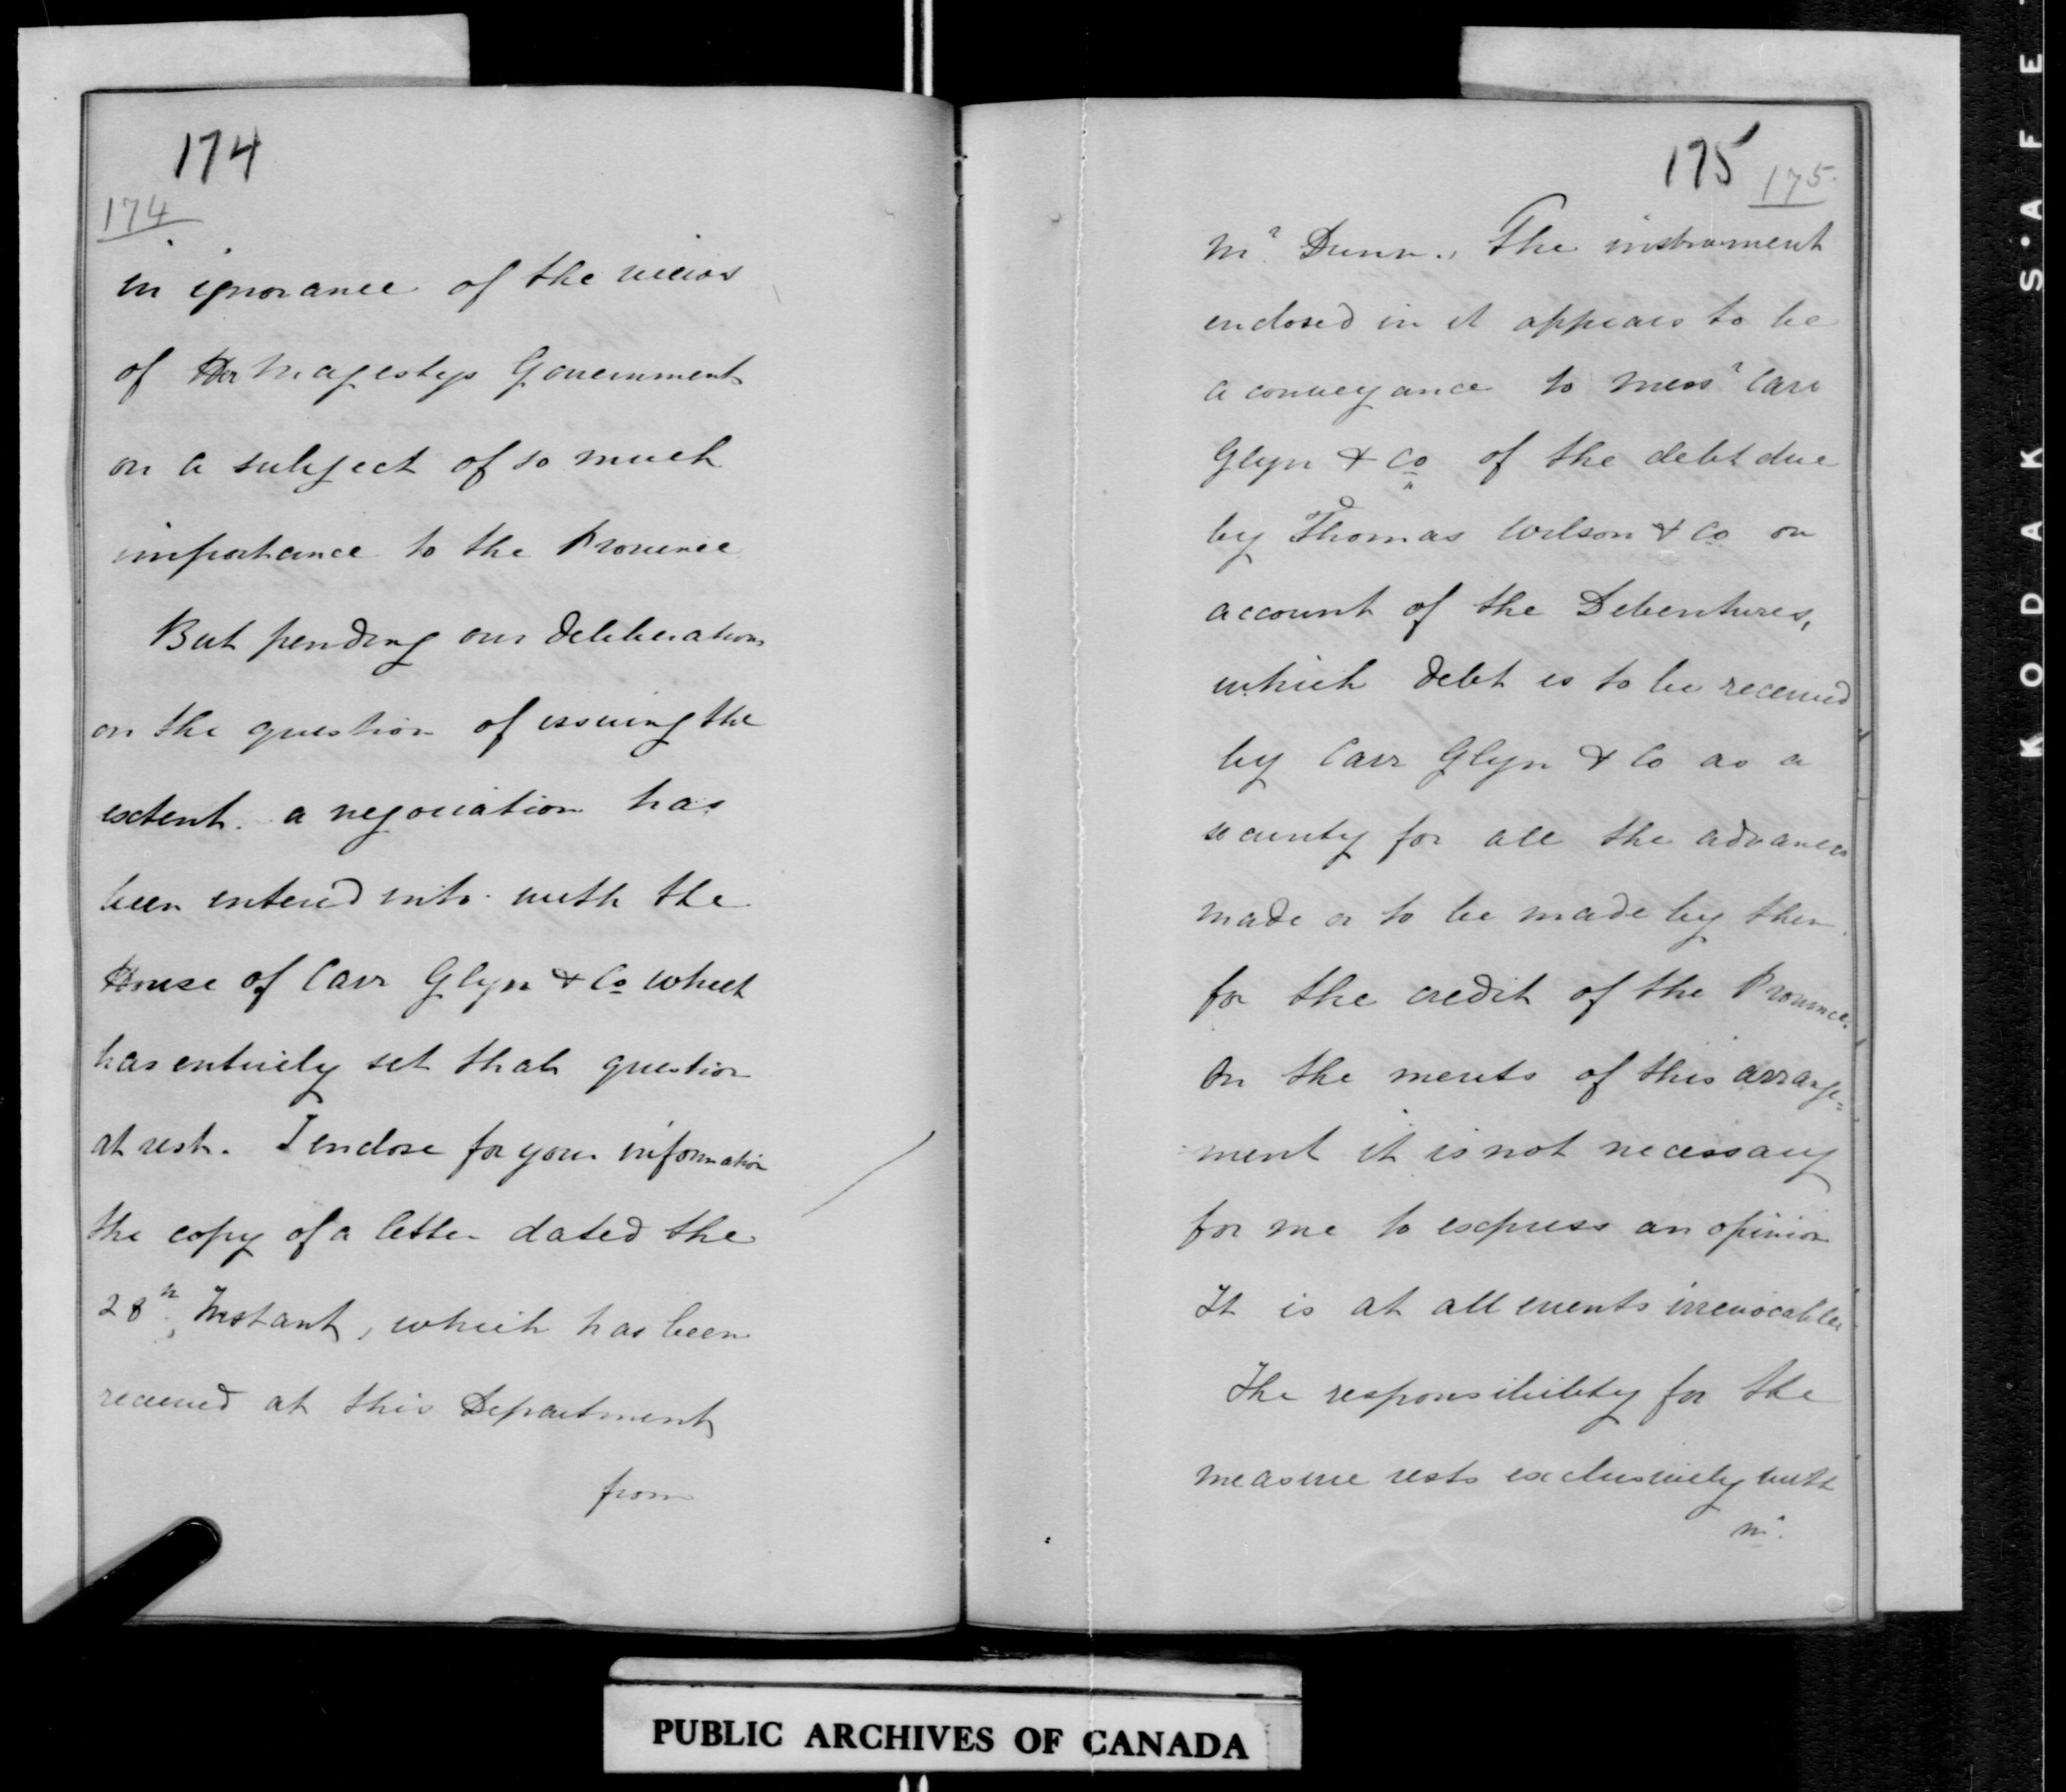 174
174
in ignorance of the views
of Her Magestys Government
on a subject of so much
importance to the Province
But pending our deliberations
on the question of issuing the
extent. a negociation has
been entered into with the
House of Carr Glyn & Co which
has entirely set that question
at rest. I enclose for your information
the copy of a letter dated the
28th Instant, which has been
received at this Department
from
175
175.
Mr Dunn., The instrument
enclosed in it appears to be
a conveyance to Messrs Carr
Glyn & Co of the debt due
by Thomas Wilson & Co on
account of the Debentures,
which debt is to be received
by Carr Glyn & Co as a
security for all the advances
made or to be made by them
for the credit of the Province.
On the merits of this arrange=
ment it is not necessary
for me to express an opinion
It is at all events irrevocable
The responsibility for the
measure rests exclusively with
Mr.
PUBLIC ARCHIVES OF CANADA
KODAK S·AFE